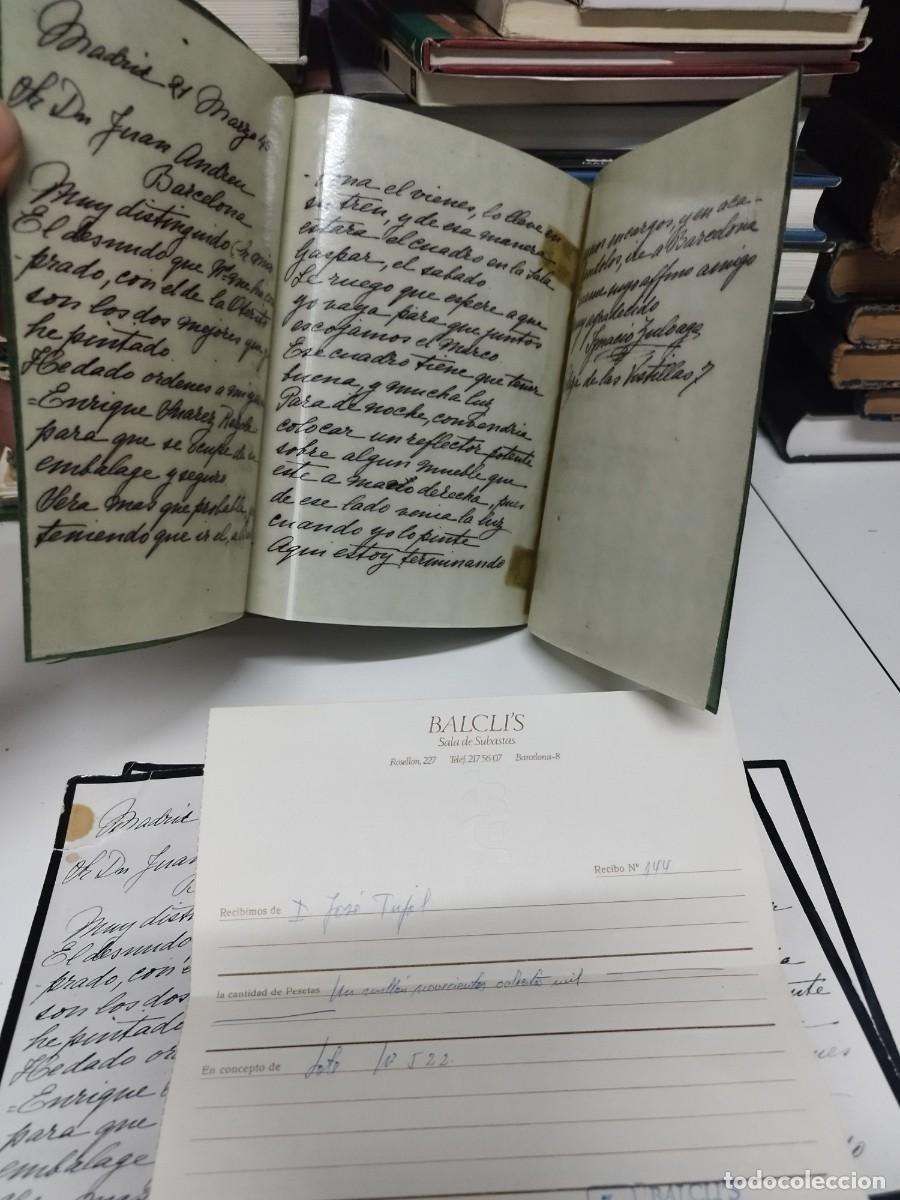 Madrid 21 Marzo 45
Sr Dn Juan Andreu
Barcelona
Muy distinguido
El desnudo que
prado, con el de la
son los dos mejores que
he pintado
He dado ordenes a mi
=Enrique Suarez
para que se ocupe de
embalage y seguro
Sera mas que probable,
teniendo que ir el,
el viernes, lo lleve en
su tren, y de esa manera
estara el cuadro en la Sala
Gaspar, el sabado
Le ruego que espere a que
yo vaya para que juntos
escojamos el Marco
Ese cuadro tiene que tener
buena, y mucha luz
Para de noche, convendria
colocar un reflector potente
sobre algun mueble que
este a mano derecha, pues
de ese lado venia la luz
cuando yo lo pinte
Aqui estoy terminando
encargos, y en aca-
ire a Barcelona
affmo amigo
Ignacio Zuloaga
de las Vistillas 7
BALCLI'S
Sala de Subastas
Rosellón, 227 Teléf. 217 56 07 Barcelona-8
Recibo N° 144
Recibimos de D José
la cantidad de Pesetas Un millón novecientas ochenta mil
En concepto de Lote Nº 522
Madrid
Sr Dn Juan
Muy
El desnudo
prado, con
son los dos
he pintado
He dado
=Enrique
para que
embalage
BALCLI'S
todocoleccion